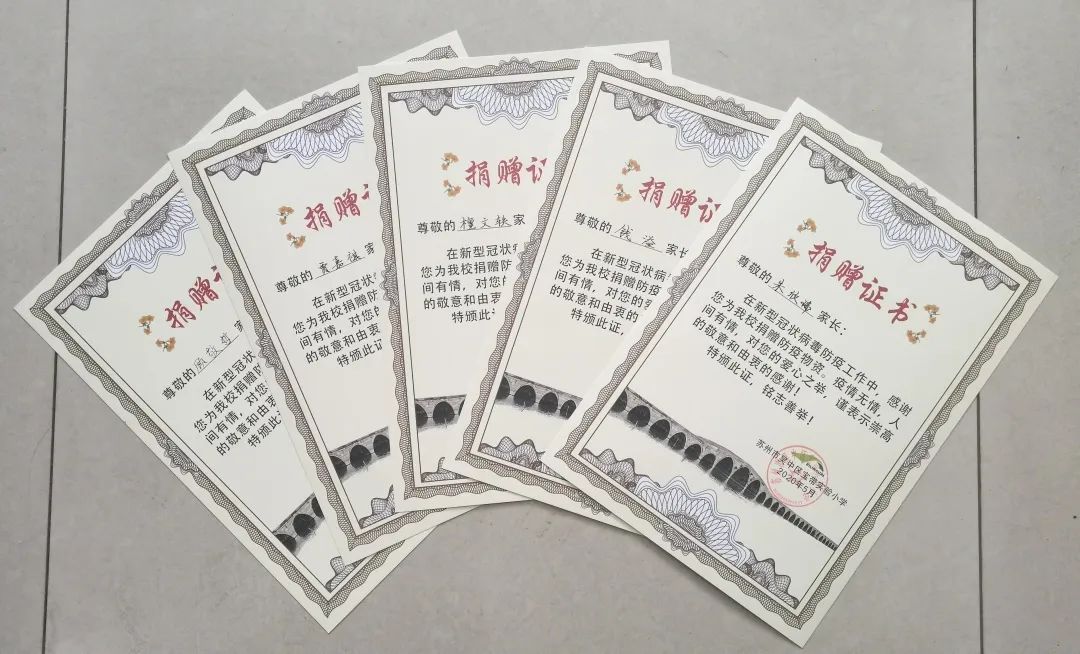 捐赠
尊敬的
在新型冠状
您为我校捐赠防
间有情，对您
的敬意和由衷
特颁此
捐赠
尊敬的
家
在新型冠状
您为我校捐赠防
间有情，对您的
的敬意和由衷的
特颁此证
捐赠证
尊敬的 檀文轶 家
在新型冠状病
您为我校捐赠防
间有情，对您的
的敬意和由衷的
特颁此证
捐赠证
尊敬的 钱溢 家长
在新型冠状病
您为我校捐赠防疫
间有情，对您的爱
的敬意和由衷的
特颁此证，
捐赠证书
尊敬的 家长：
在新型冠状病毒防疫工作中，感谢
您为我校捐赠防疫物资。疫情无情，人
间有情，对您的爱心之举，谨表示崇高
的敬意和由衷的感谢！
特颁此证，铭志善举！
苏州市吴中区宝带实验小学
2020年5月